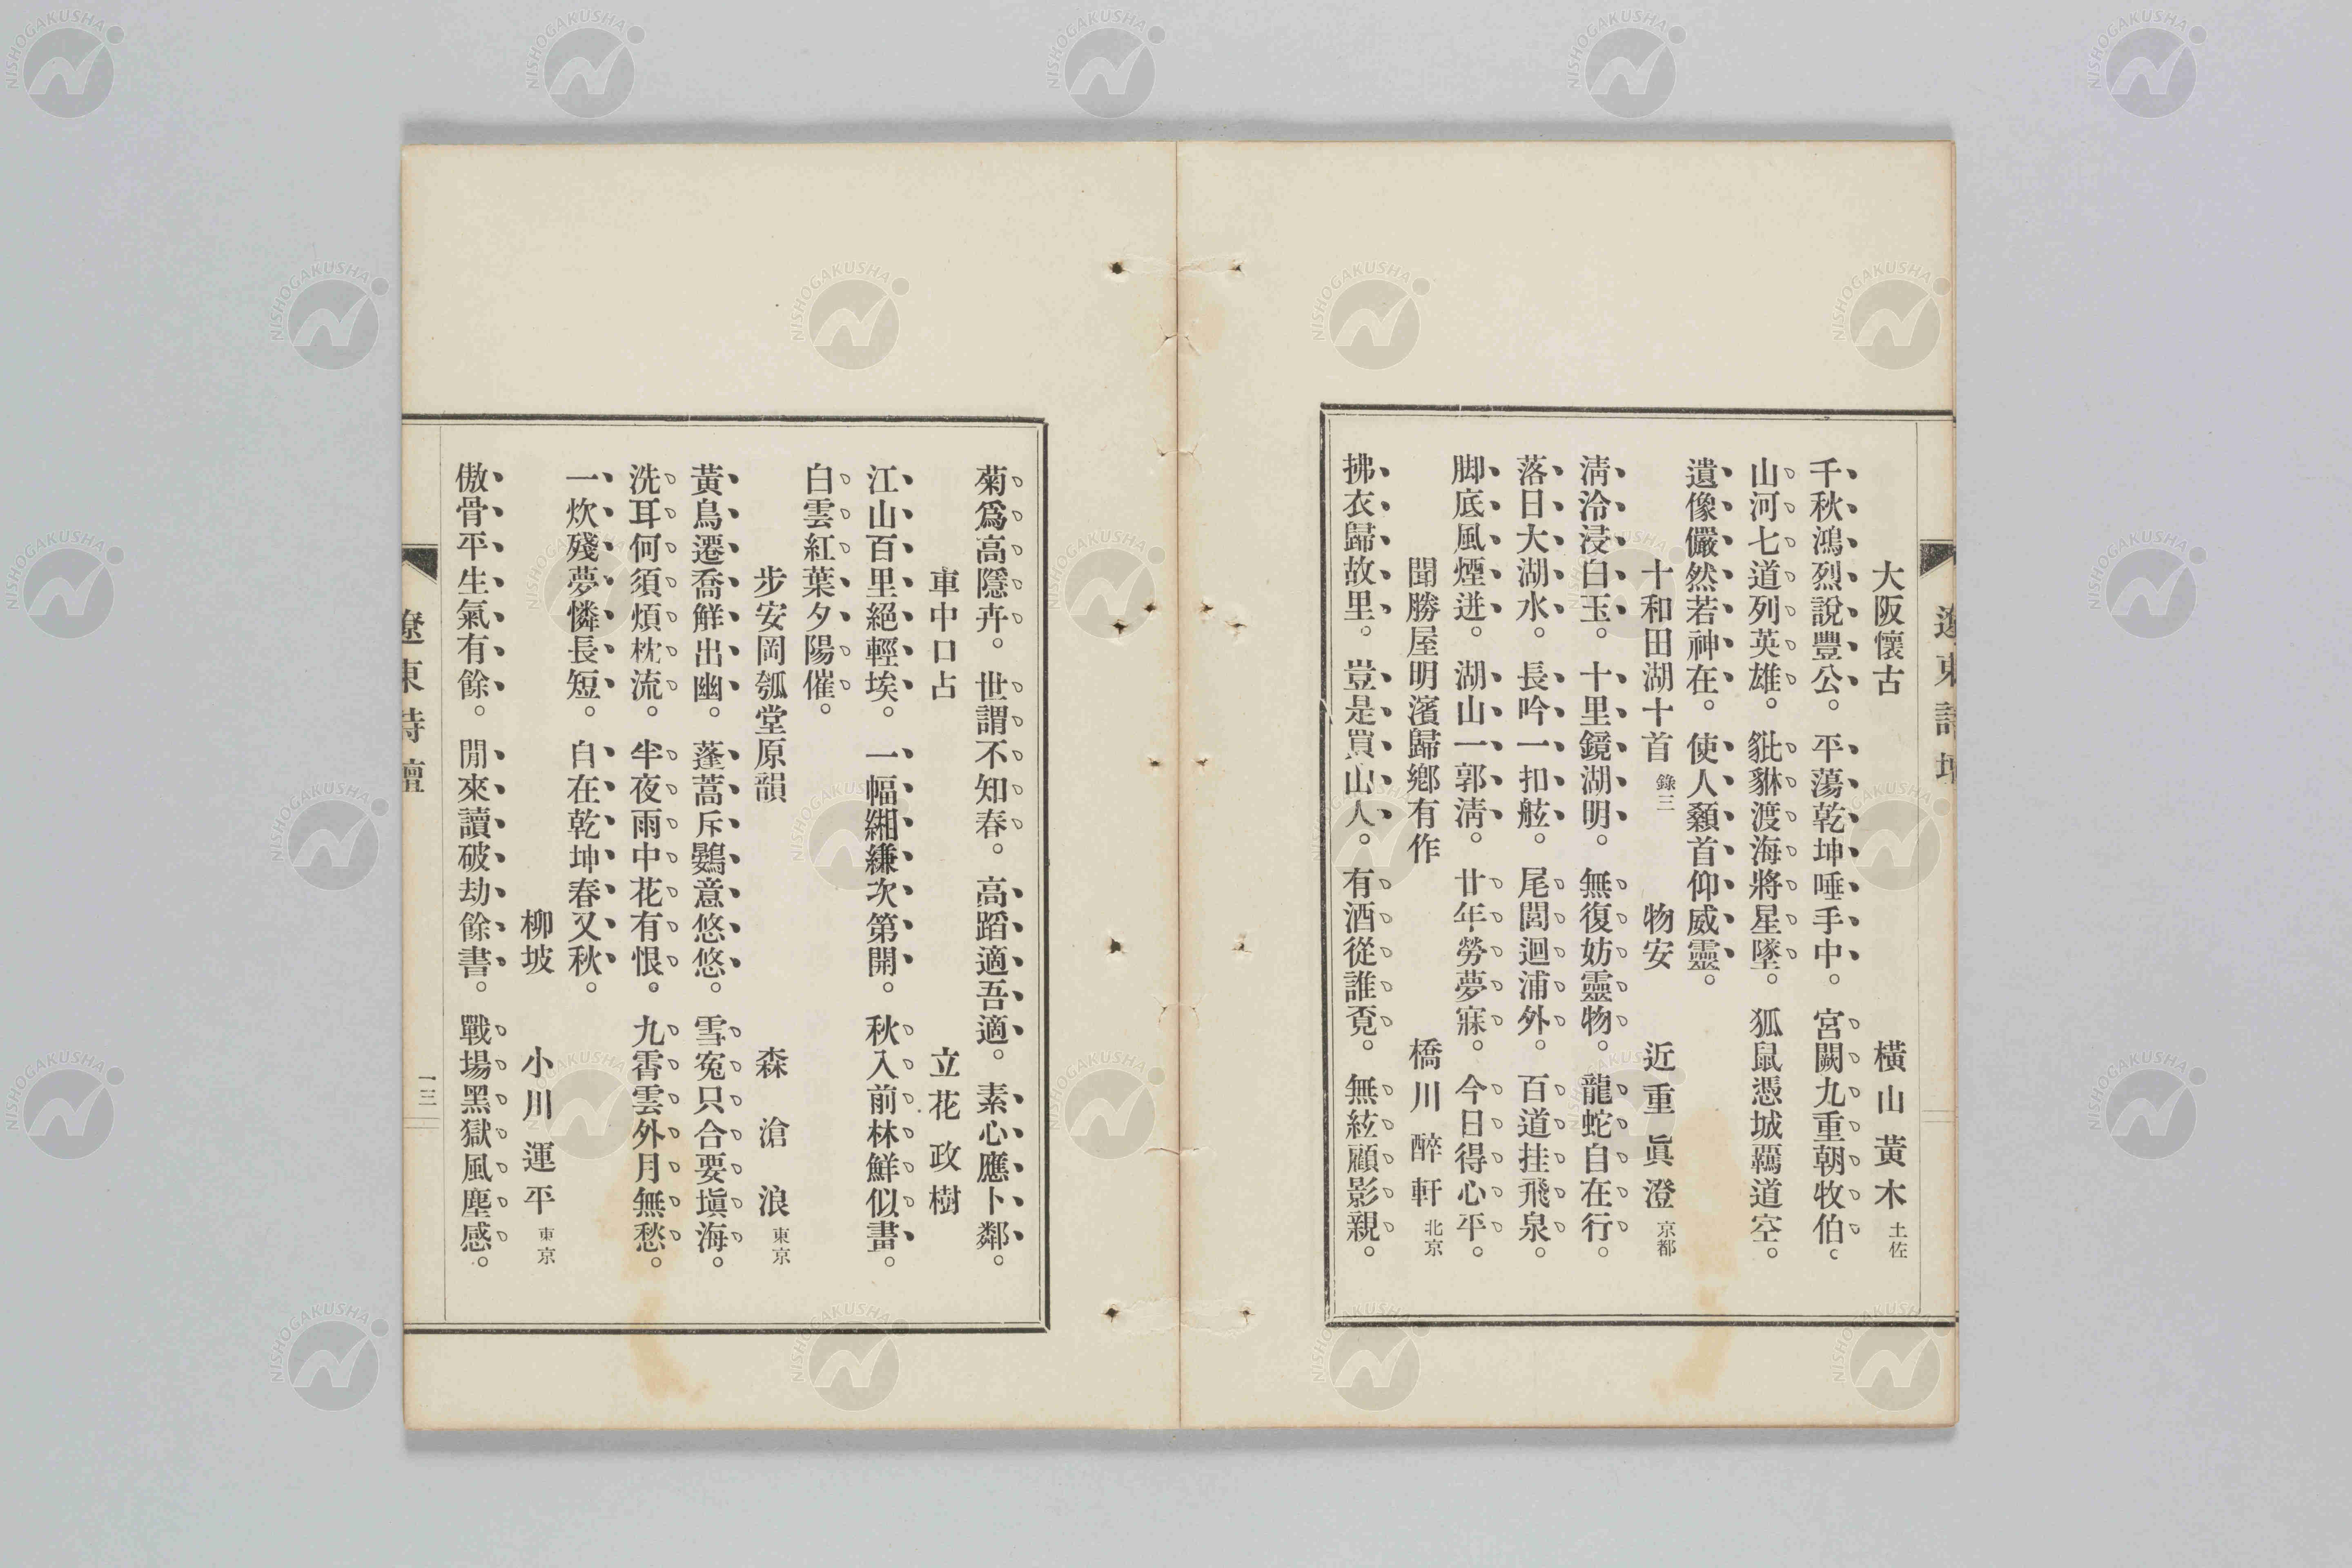 大阪懷古　橫山黃木 土佐
千秋鴻烈說豐公。平蕩乾坤唾手中。宮闕九重朝牧伯。
山河七道列英雄。貔貅渡海將星墜。狐鼠憑城覇道空。
遺像儼然若神在。使人顙首仰威靈。
十和田湖十首 錄三　物安　近重眞澄 京都
淸泠浸白玉。十里鏡湖明。無復妨靈物。龍蛇自在行。
落日大湖水。長吟一扣舷。尾閭迴浦外。百道挂飛泉。
脚底風煙迸。湖山一郭淸。廿年勞夢寐。今日得心平。
聞勝屋明濱歸鄕有作　橋川醉軒 北京
拂衣歸故里。豈是買山人。有酒從誰覔。無絃顧影親。
菊爲高隱卉。世謂不知春。高蹈適吾適。素心應卜鄰。
車中口占　立花政樹
江山百里絕輕埃。一幅緗縑次第開。秋入前林鮮似畫。
白雲紅葉夕陽催。
步安岡瓠堂原韻　森滄浪 東京
黃鳥遷喬鮮出幽。蓬蒿斥鷃意悠悠。雪寃只合要塡海。
洗耳何須煩枕流。半夜雨中花有恨。九霄雲外月無愁。
一炊殘夢憐長短。自在乾坤春又秋。
柳坡　小川運平 東京
傲骨平生氣有餘。閒來讀破劫餘書。戰場黑獄風塵感。
遼東詩壇
一三
NISHOGAKUSHA